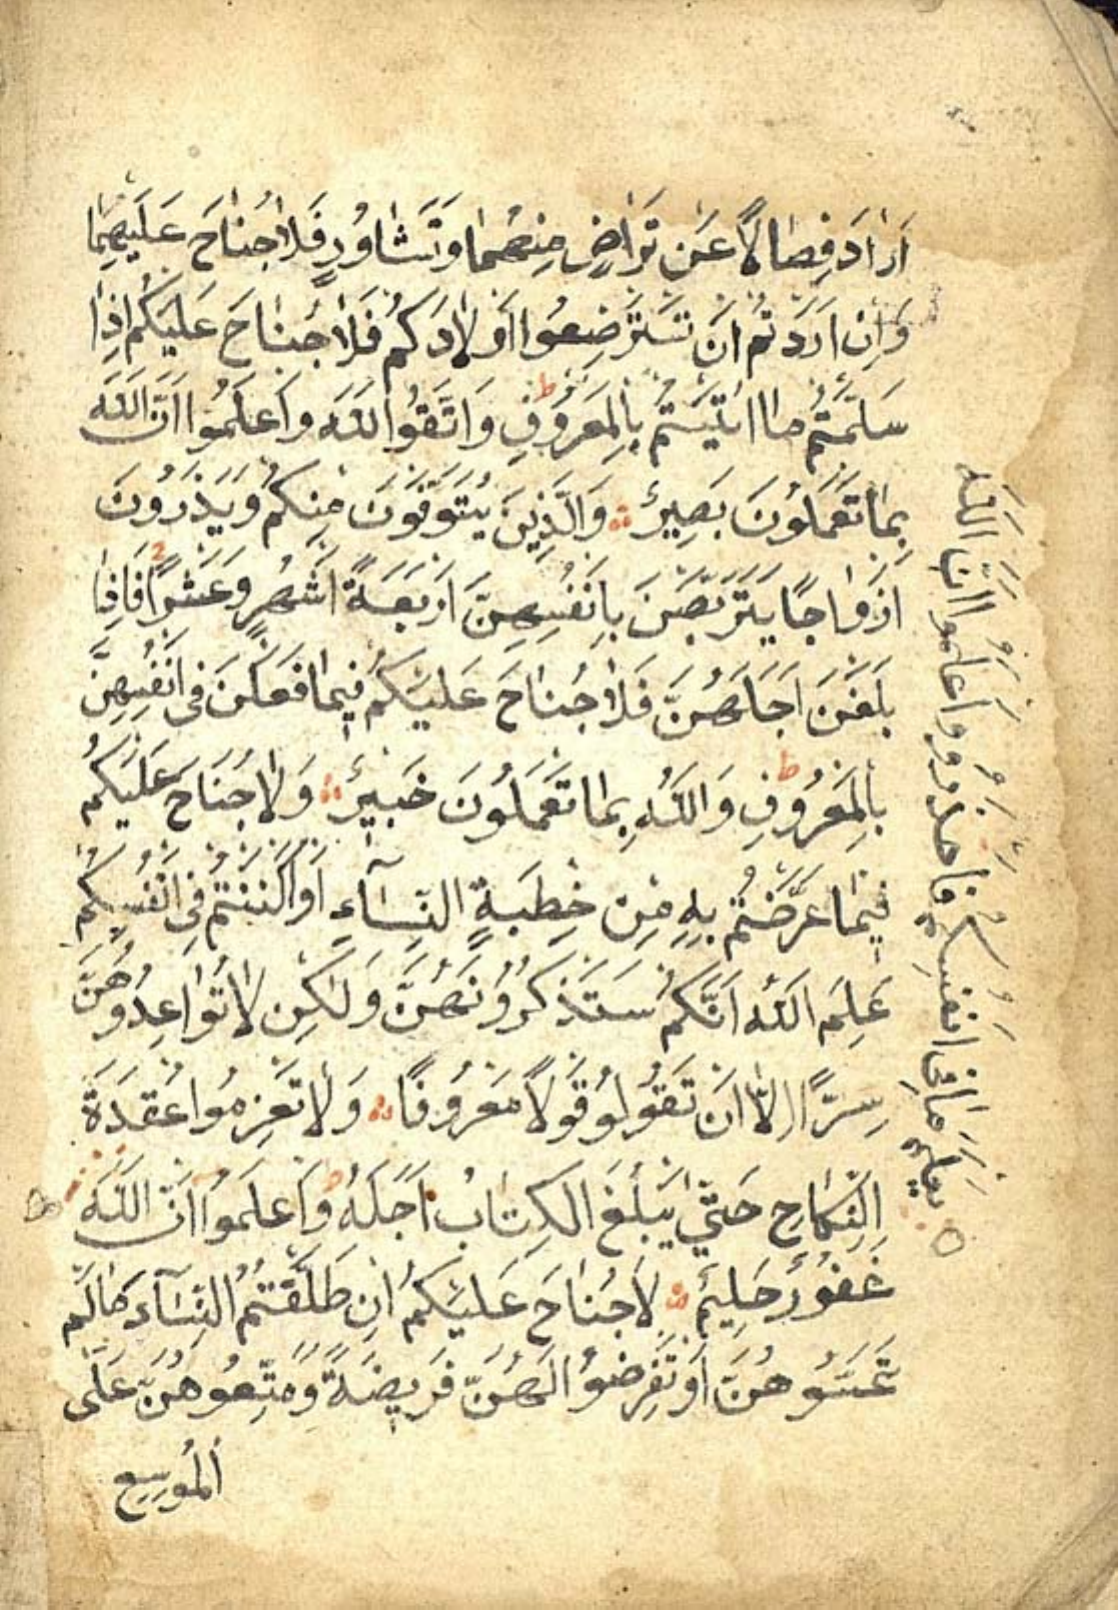 اَرٰادَ فِصٰالًا عَنْ تَرٰاضٍ مِنْهُمٰا وَتَشٰاوُرٍ فَلٰا جُنٰاحَ عَلَيْهِمٰا
وَاِنْ اَرَدْتُمْ اَنْ تَسْتَرْضِعُوا اَوْلٰادَكُمْ فَلٰا جُنٰاحَ عَلَيْكُمْ اِذٰا
سَلَّمْتُمْ مٰا اٰتَيْتُمْ بِالْمَعْرُوفِ ط وَاتَّقُوا اللّٰهَ وَاعْلَمُوا اَنَّ اللّٰهَ
بِمٰا تَعْمَلُونَ بَصِيرٌ ۞ وَالَّذِينَ يُتَوَفَّوْنَ مِنْكُمْ وَيَذَرُونَ
اَزْوٰاجًا يَتَرَبَّصْنَ بِاَنْفُسِهِنَّ اَرْبَعَةَ اَشْهُرٍ وَعَشْرًا فَاِذٰا
بَلَغْنَ اَجَلَهُنَّ فَلٰا جُنٰاحَ عَلَيْكُمْ فِيمٰا فَعَلْنَ فِى اَنْفُسِهِنَّ
بِالْمَعْرُوفِ ط وَاللّٰهُ بِمٰا تَعْمَلُونَ خَبِيرٌ ۞ وَلٰا جُنَاحَ عَلَيْكُمْ
فِيمٰا عَرَّضْتُمْ بِهِ مِنْ خِطْبَةِ النِّسَآءِ اَوْ اَكْنَنْتُمْ فِى اَنْفُسِكُمْ
عَلِمَ اللّٰهُ اَنَّكُمْ سَتَذْكُرُونَهُنَّ وَلٰكِنْ لٰا تُوٰاعِدُوهُنَّ
سِرًّا اِلّٰا اَنْ تَقُولُوا قَوْلًا مَعْرُوفًا ۞ وَلٰا تَعْزِمُوا عُقْدَةَ
النِّكٰاحِ حَتّٰى يَبْلُغَ الْكِتٰابُ اَجَلَهُ ط وَاعْلَمُوا اَنَّ اللّٰهَ
يَعْلَمُ مٰا فِى اَنْفُسِكُمْ فَاحْذَرُوهُ وَاعْلَمُوا اَنَّ اللّٰهَ
غَفُورٌ حَلِيمٌ ۞ لٰا جُنٰاحَ عَلَيْكُمْ اِنْ طَلَّقْتُمُ النِّسَآءَ مٰا لَمْ
تَمَسُّوهُنَّ اَوْ تَفْرِضُوا لَهُنَّ فَرِيضَةً وَمَتِّعُوهُنَّ عَلَى
الْمُوسِعِ